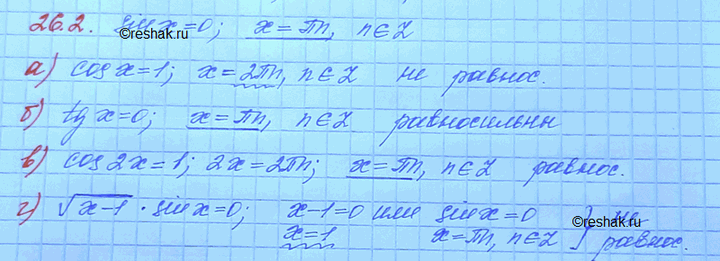 26.2. sin x = 0; x = πn, n ∈ Z
©reshak.ru
а) cos x = 1; x = 2πn, n ∈ Z не равнос.
б) tg x = 0; x = πn, n ∈ Z равносильны
в) cos 2x = 1; 2x = 2πn; x = πn, n ∈ Z равнос.
г) √(x-1) · sin x = 0; x-1=0 или sin x = 0 } не
©reshak.ru
x=1 x = πn, n ∈ Z равнос.